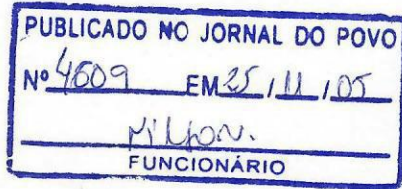 PUBLICADO NO JORNAL DO POVO
Nº 4609 EM 25/11/05
FUNCIONÁRIO